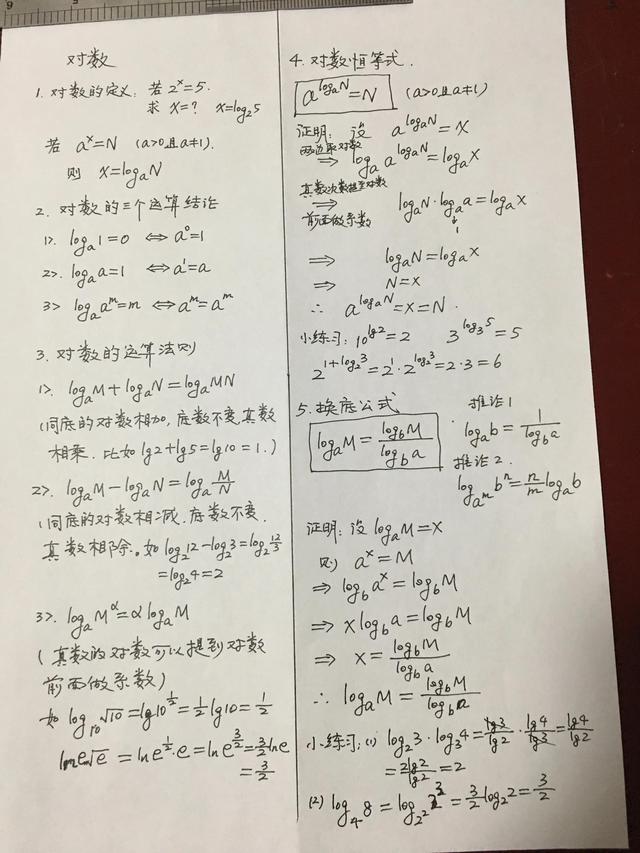 对数
1. 对数的定义: 若 2^x=5.
求 x=? x=log₂5
若 a^x=N (a>0且a≠1).
则 x=logₐN
2. 对数的三个运算结论
1>. logₐ1=0 ⟺ a⁰=1
2>. logₐa=1 ⟺ a¹=a
3> logₐa^m=m ⟺ a^m=a^m
3. 对数的运算法则
1>. logₐM+logₐN=logₐMN
(同底的对数相加, 底数不变, 真数
相乘. 比如 lg2+lg5=lg10=1.)
2>. logₐM-logₐN=logₐ M/N
(同底的对数相减. 底数不变.
真数相除. 如 log₂12-log₂3=log₂ 12/3
=log₂4=2
3>. logₐM^α=αlogₐM
(真数的对数可以提到对数
前面做系数)
如 log₁₀√10=lg10^(1/2)=1/2 lg10=1/2
lne√e=lne^(1/2)·e=lne^(3/2)=3/2 lne
=3/2
4. 对数恒等式.
a^(logₐN)=N (a>0且a≠1)
证明: 设 a^(logₐN)=x
两边取对数
⟹ logₐa^(logₐN)=logₐx
真数次数提至对数
⟹ logₐN·logₐa=logₐx
前面做系数 ↓1
⟹ logₐN=logₐx
⟹ N=x
∴ a^(logₐN)=x=N.
小练习: 10^(lg2)=2 3^(log₃5)=5
2^(1+log₂3)=2¹·2^(log₂3)=2·3=6
5. 换底公式
logₐM=log_bM/log_ba
推论1
logₐb=1/log_ba
推论2.
log_(a^m)b^n=n/m logₐb
证明: 设 logₐM=x
则 a^x=M
⟹ log_ba^x=log_bM
⟹ xlog_ba=log_bM
⟹ x=log_bM/log_ba
∴ logₐM=log_bM/log_ba
小练习: (1) log₂3·log₃4=lg3/lg2·lg4/lg3=lg4/lg2
=2lg2/lg2=2
(2) log₄8=log_(2²)2³=3/2 log₂2=3/2